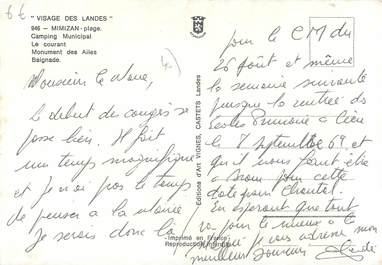 6€
" VISAGE DES LANDES "
946 - MIMIZAN - plage.
Camping Municipal
Le courant
Monument des Ailes
Baignade.
Monsieur le Maire,
Le début du congés se
passe bien. Il fait
un temps magnifique
et je n'ai pas le temps
de penser à la mairie
Je serais donc là
Editions d'Art VIGNES, CASTETS Landes
Imprimé en France
Reproduction interdite
pour le CM du
26 Août et même
la semaine suivante
puisque la rentrée des
écoles Primaire a lieu
le 8 Septembre 69 et
qu'il nous faut être
à pour cette
date pour Chantal.
En esperant que tout
va pour le mieux à la
je vous adresse mon
meilleur souvenir